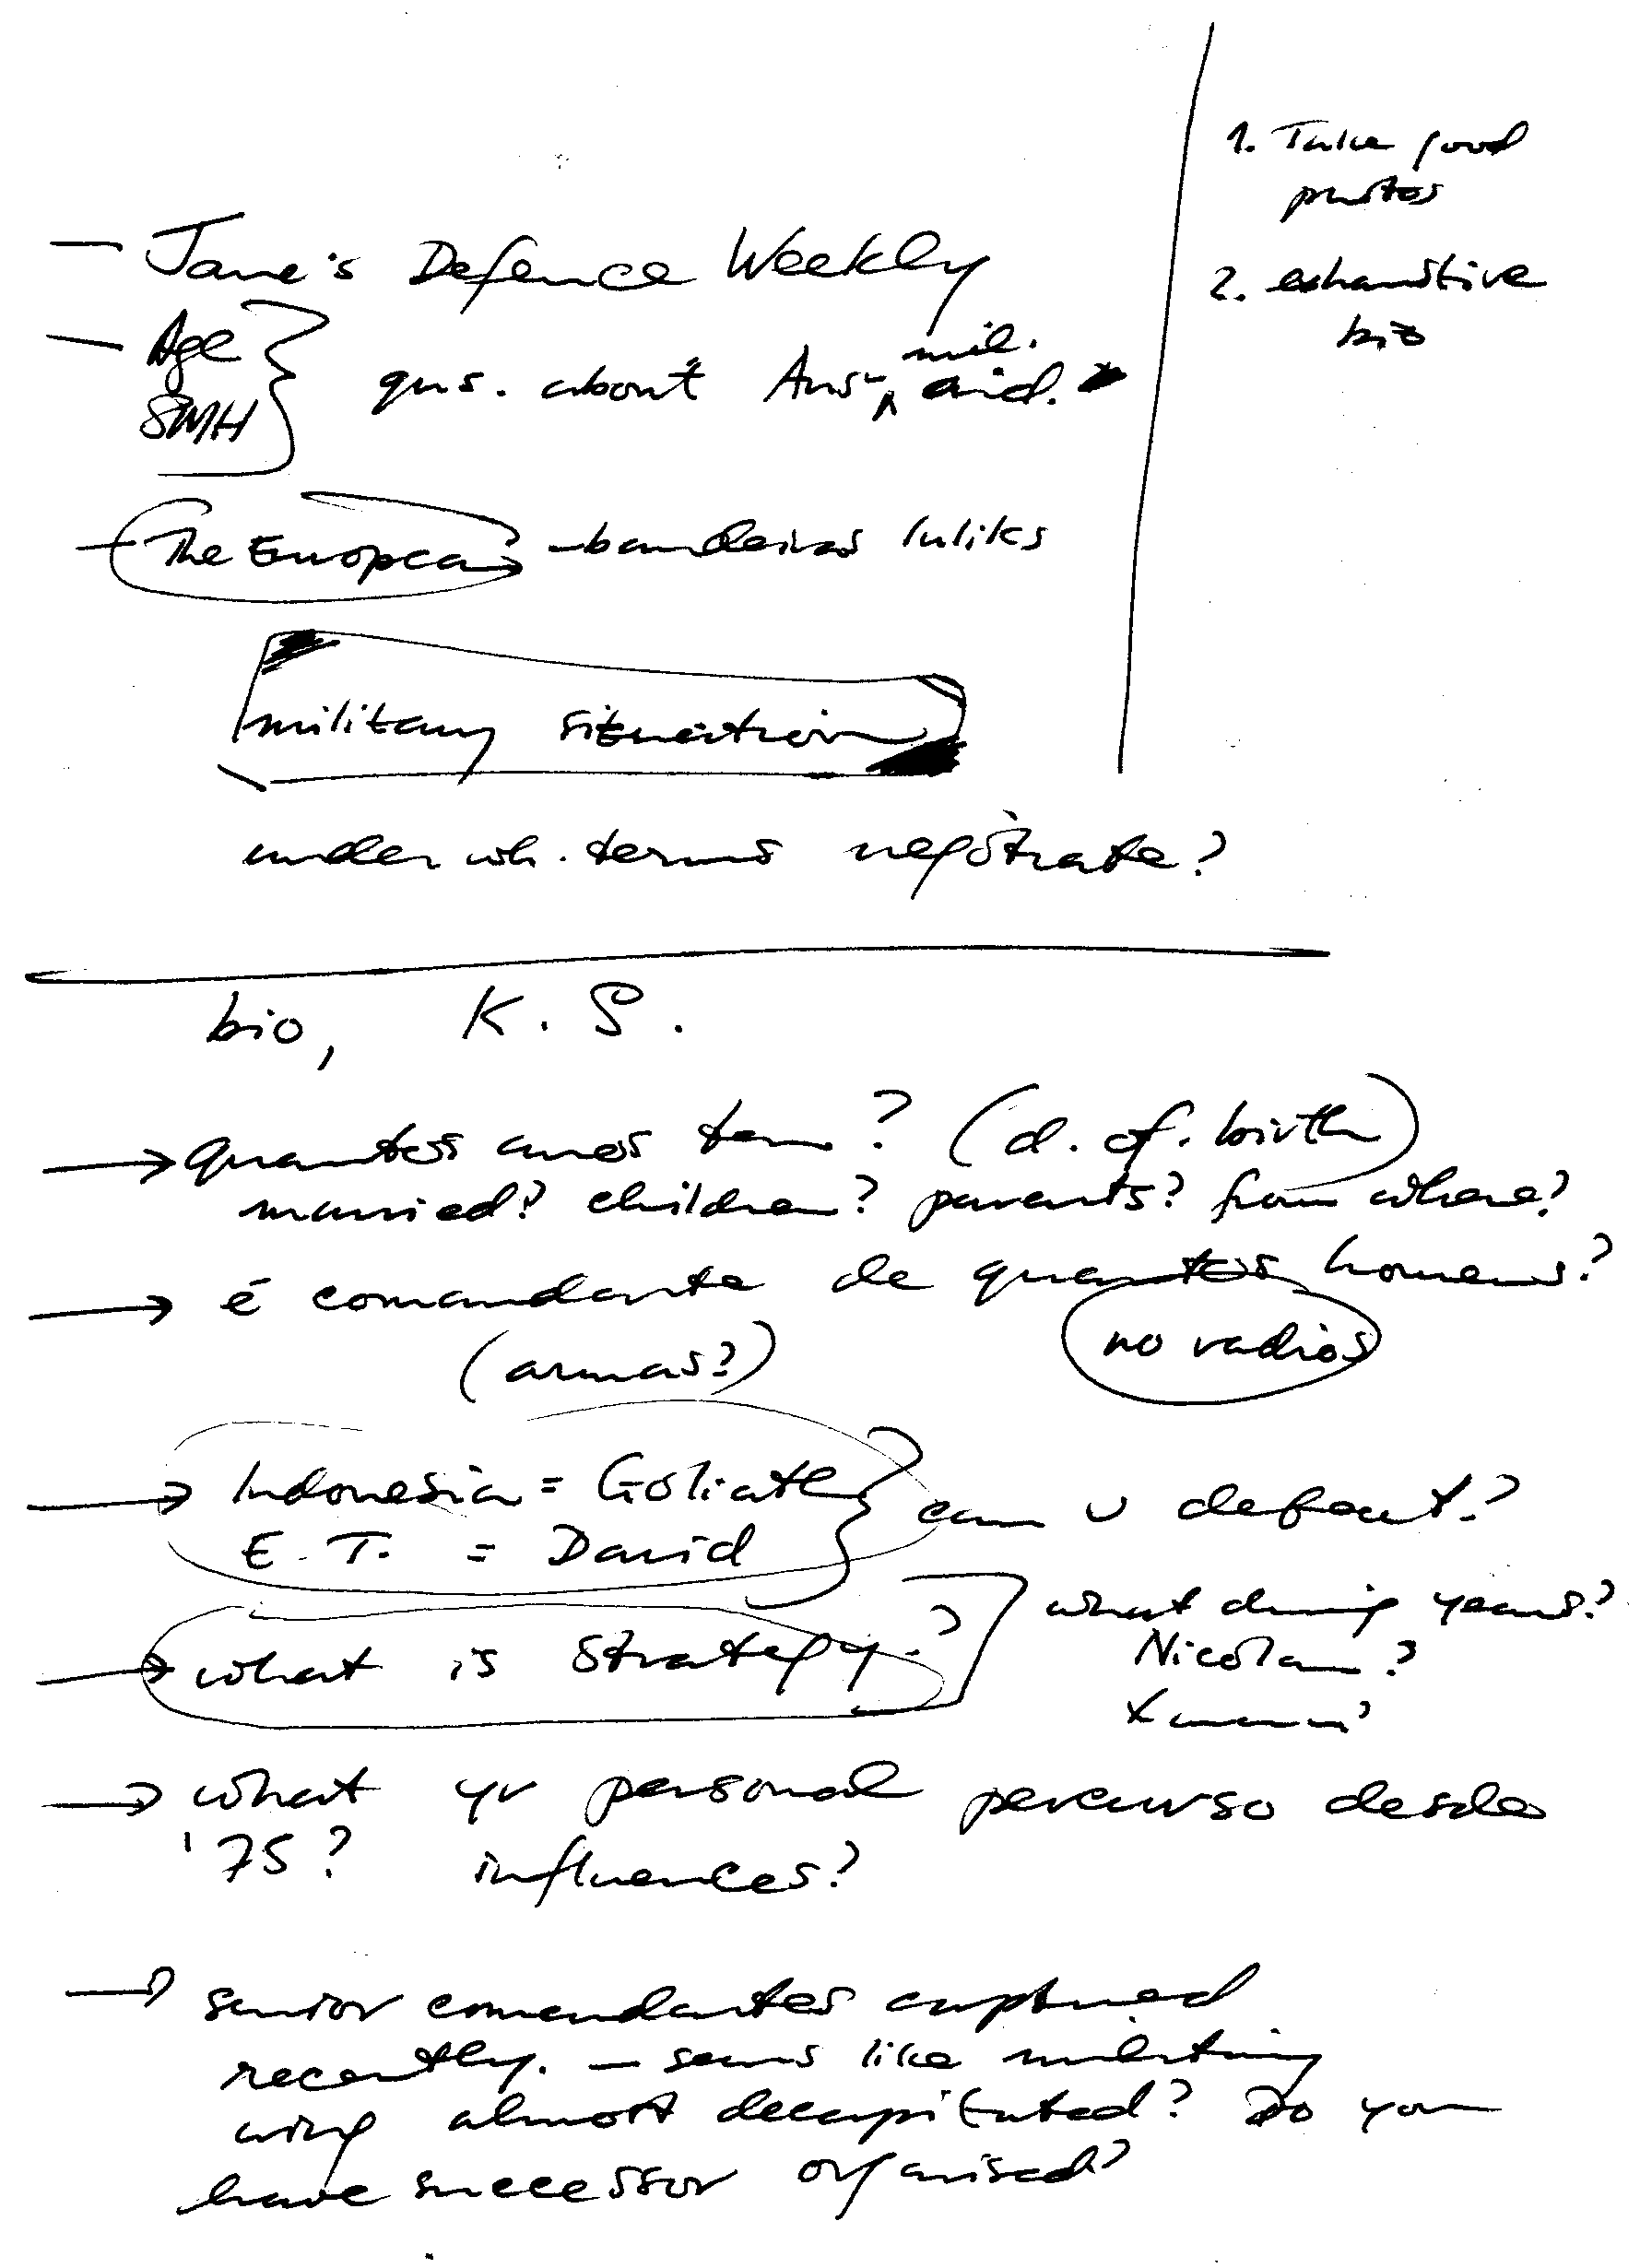 — Jane's Defence Weekly
— Age
SMH
qns. about Aus- mil. aid.
— The European - bandeiras luliks
military situation
under wh. terms negotiate?
1. Take good
photos
2. exhaustive
bio
bio, K. S.
→ quantos anos tem? (d. of. birth)
married? children? parents? from where?
→ é comandante de quantos homens?
(armas?) no radios
→ Indonesia = Goliath
E. T. = David
can u defeat?
→ what is strategy?
what during years?
Nicolau?
Xanana?
→ what yr personal percurso desde
'75? influences?
→ senior comandantes captured
recently. — seems like military
wing almost decapitated? Do you
have successor organised?